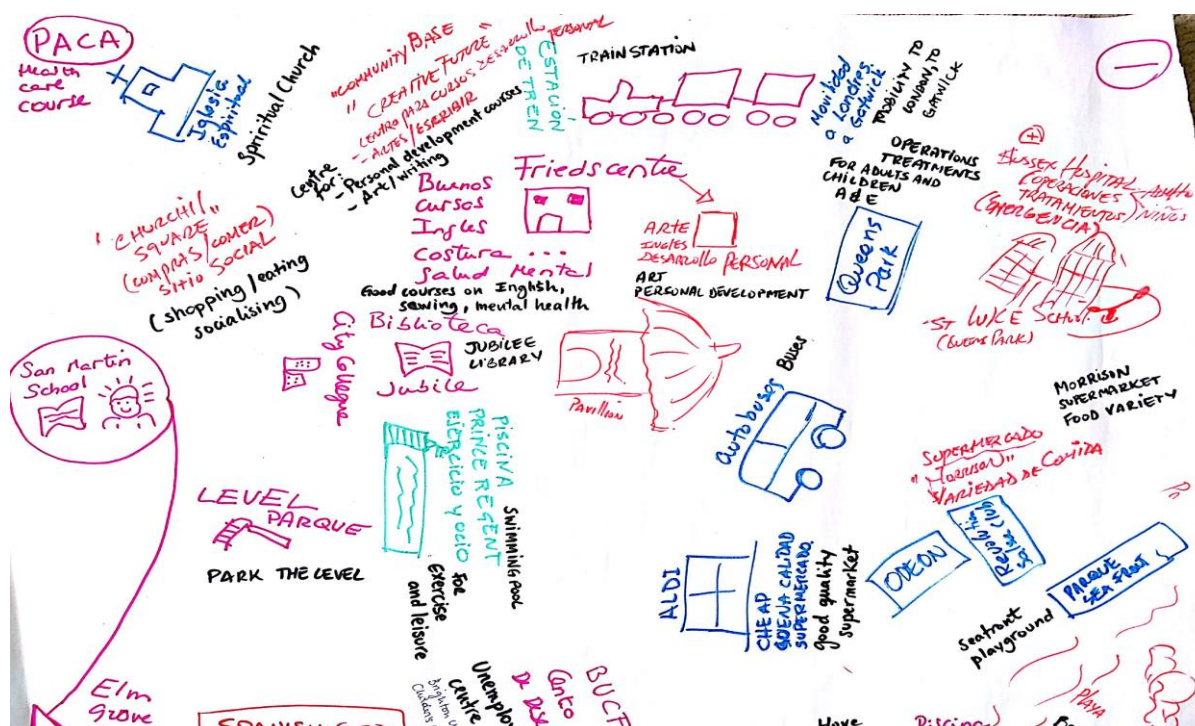 PACA
Health
care
course
Iglesia
Espiritual
Spriritual Church
"COMMUNITY BASE
" CREATIVE FUTURE"
CENTRO PARA CURSOS, DESARROLLO PERSONAL
- ARTES / ESCRIBIR
Centre
for:
- Personal development courses
- Art / writing
ESTACIÓN
DE TREN
TRAIN STATION
Movilidad
a Londres,
a Gatwick
MOBILITY TO
LONDON, TO
GATWICK
OPERATIONS
TREATMENTS
FOR ADULTS AND
CHILDREN
A&E
SUSSEX HOSPITAL
(OPERACIONES
TRATAMIENTOS)
(EMERGENCIA)
NIÑOS
"CHURCHIL
SQUARE"
(COMPRAS/COMER)
SITIO SOCIAL
(shopping / eating
socialising)
Frieds centre
Buenos
cursos
Ingles
Costura ...
Salud Mental
Good courses on English,
sewing, mental health
ARTE
INGLES
DESAROLLO PERSONAL
ART
PERSONAL DEVELOPMENT
Queens
Park
-ST LUKE School
(QUEENS PARK)
San Martin
School
City Collegue
Biblioteca
Jubile
JUBILEE
LIBRARY
Pavillion
Autobuses
Buses
MORRISON
SUPERMARKET
FOOD VARIETY
SUPERMERCADO
"MORRISON"
VARIEDAD DE COMIDA
LEVEL
PARQUE
PARK THE LEVEL
PISCINA
PRINCE REGENT
EJERCICIO Y OCIO
SWIMMING POOL
for
exercise
and leisure
ALDI
CHEAP
BUENA CALIDAD
SUPERMERCADO.
good quality
supermarket
ODEON
Revolution
Salsa club
PARQUE
SEA FRONT
Seafront
playground
PLAYA
Elm
Grove
Centre
De
Hove
Piscina